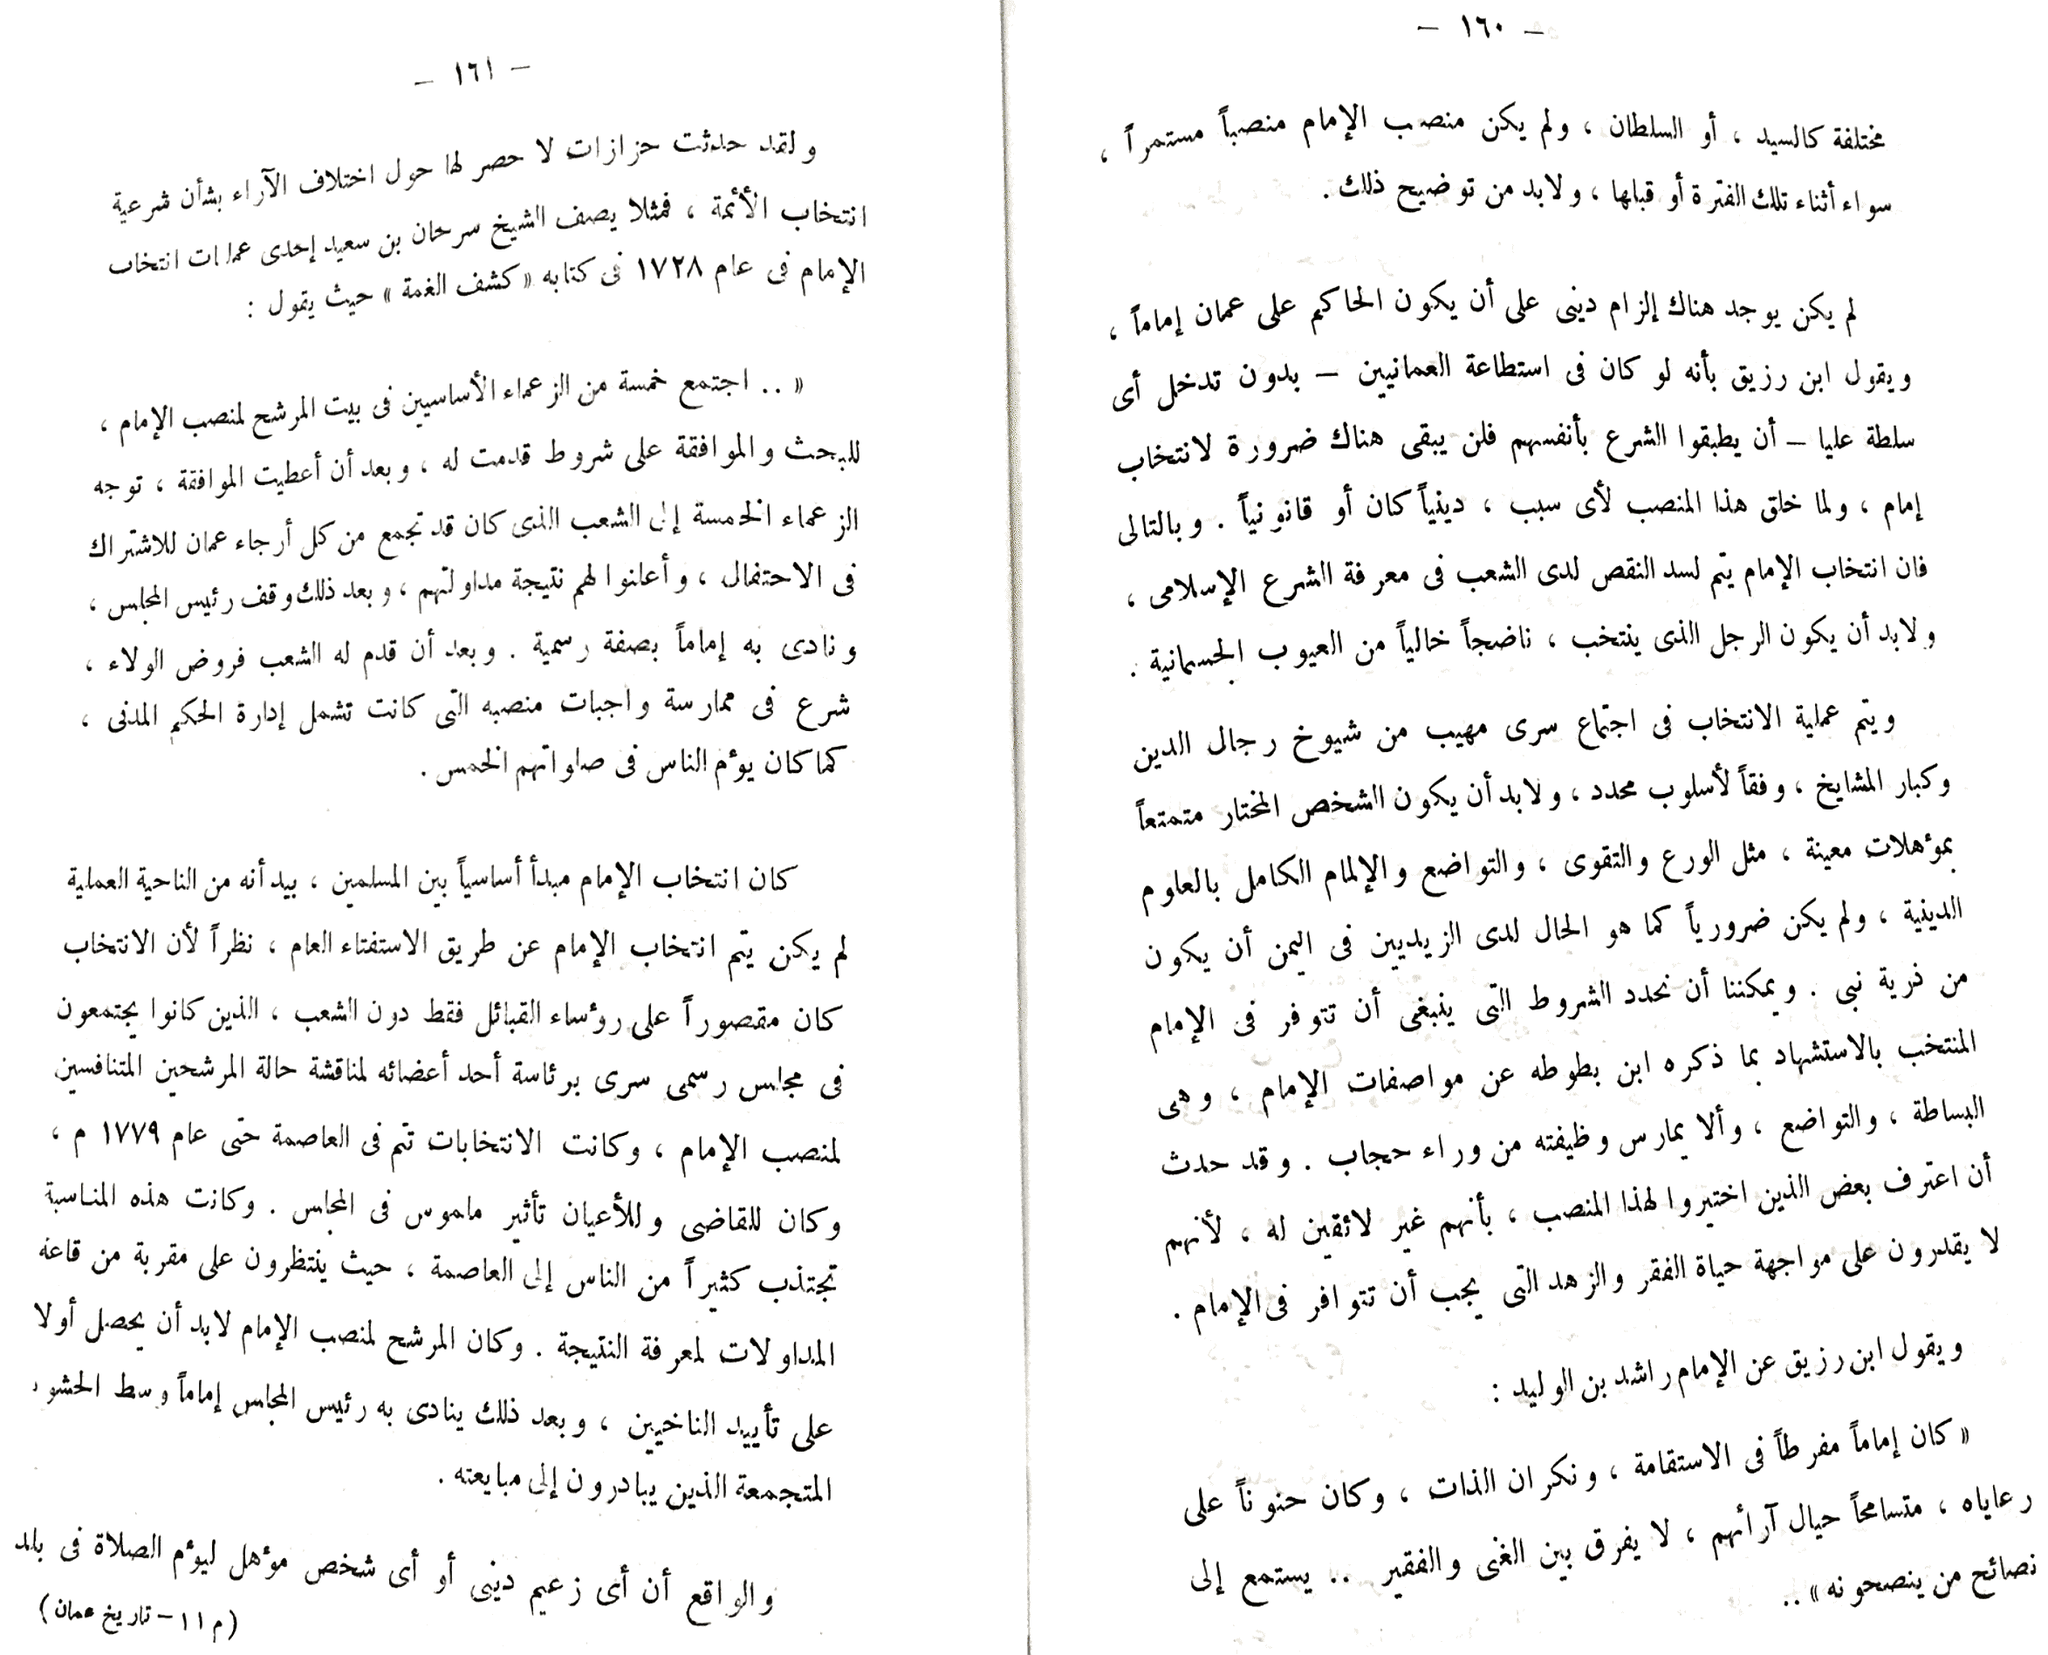 - ١٦٠ -
مختلفة كالسيد ، أو السلطان ، ولم يكن منصب الإمام منصباً مستمراً ،
سواء أثناء تلك الفترة أو قبلها ، ولابد من توضيح ذلك .
لم يكن يوجد هناك إلزام دينى على أن يكون الحاكم على عمان إماماً ،
ويقول ابن رزيق بأنه لو كان فى استطاعة العمانيين – بدون تدخل أى
سلطة عليا – أن يطبقوا الشرع بأنفسهم فلن يبقى هناك ضرورة لانتخاب
إمام ، ولما خلق هذا المنصب لأى سبب ، دينياً كان أو قانونياً . وبالتالى
فان انتخاب الإمام يتم لسد النقص لدى الشعب فى معرفة الشرع الإسلامى ،
ولابد أن يكون الرجل الذى ينتخب ، ناضجاً خالياً من العيوب الجسمانية .
ويتم عملية الانتخاب فى اجتماع سرى مهيب من شيوخ رجال الدين
وكبار المشايخ ، وفقاً لأسلوب محدد ، ولابد أن يكون الشخص المختار متمتعاً
بمؤهلات معينة ، مثل الورع والتقوى ، والتواضع والإلمام الكامل بالعلوم
الدينية ، ولم يكن ضرورياً كما هو الحال لدى الزيديين فى اليمن أن يكون
من ذرية نبى . ويمكننا أن نحدد الشروط التى ينبغى أن تتوفر فى الإمام
المنتخب بالاستشهاد بما ذكره ابن بطوطه عن مواصفات الإمام ، وهى
البساطة ، والتواضع ، وألا يمارس وظيفته من وراء حجاب . وقد حدث
أن اعترف بعض الذين اختيروا لهذا المنصب ، بأنهم غير لائقين له ، لأنهم
لا يقدرون على مواجهة حياة الفقر والزهد التى يجب أن تتوافر فى الإمام .
ويقول ابن رزيق عن الإمام راشد بن الوليد :
« كان إماماً مفرطاً فى الاستقامة ، ونكران الذات ، وكان حنوناً على
رعاياه ، متسامحاً حيال آرائهم ، لا يفرق بين الغنى والفقير .. يستمع إلى
نصائح من ينصحونه » ..
- ١٦١ -
ولقد حدثت حزازات لا حصر لها حول اختلاف الآراء بشأن شرعية
انتخاب الأئمة ، فمثلا يصف الشيخ سرحان بن سعيد إحدى عمليات انتخاب
الإمام فى عام ١٧٢٨ فى كتابه « كشف الغمة » حيث يقول :
« .. اجتمع خمسة من الزعماء الأساسيين فى بيت المرشح لمنصب الإمام ،
للبحث والموافقة على شروط قدمت له ، وبعد أن أعطيت الموافقة ، توجه
الزعماء الخمسة إلى الشعب الذى كان قد تجمع من كل أرجاء عمان للاشتراك
فى الاحتفال ، وأعلنوا لهم نتيجة مداولتهم ، وبعد ذلك وقف رئيس المجلس ،
ونادى به إماماً بصفة رسمية . وبعد أن قدم له الشعب فروض الولاء ،
شرع فى ممارسة واجبات منصبه التى كانت تشمل إدارة الحكم المدنى ،
كما كان يؤم الناس فى صلواتهم الخمس .
كان انتخاب الإمام مبدأ أساسياً بين المسلمين ، بيد أنه من الناحية العملية
لم يكن يتم انتخاب الإمام عن طريق الاستفتاء العام ، نظراً لأن الانتخاب
كان مقصوراً على رؤساء القبائل فقط دون الشعب ، الذين كانوا يجتمعون
فى مجلس رسمى سرى برئاسة أحد أعضائه لمناقشة حالة المرشحين المتنافسين
لمنصب الإمام ، وكانت الانتخابات تتم فى العاصمة حتى عام ١٧٧٩ م ،
وكان للقاضى وللأعيان تأثير ملموس فى المجلس . وكانت هذه المناسبة
تجتذب كثيراً من الناس إلى العاصمة ، حيث ينتظرون على مقربة من قاعة
المداولات لمعرفة النتيجة . وكان المرشح لمنصب الإمام لابد أن يحصل أولا
على تأييد الناخبين ، وبعد ذلك ينادى به رئيس المجلس إماماً وسط الحشود
المتجمعة الذين يبادرون إلى مبايعته .
والواقع أن أى زعيم دينى أو أى شخص مؤهل ليؤم الصلاة فى بلد
(م ١١ – تاريخ عمان)